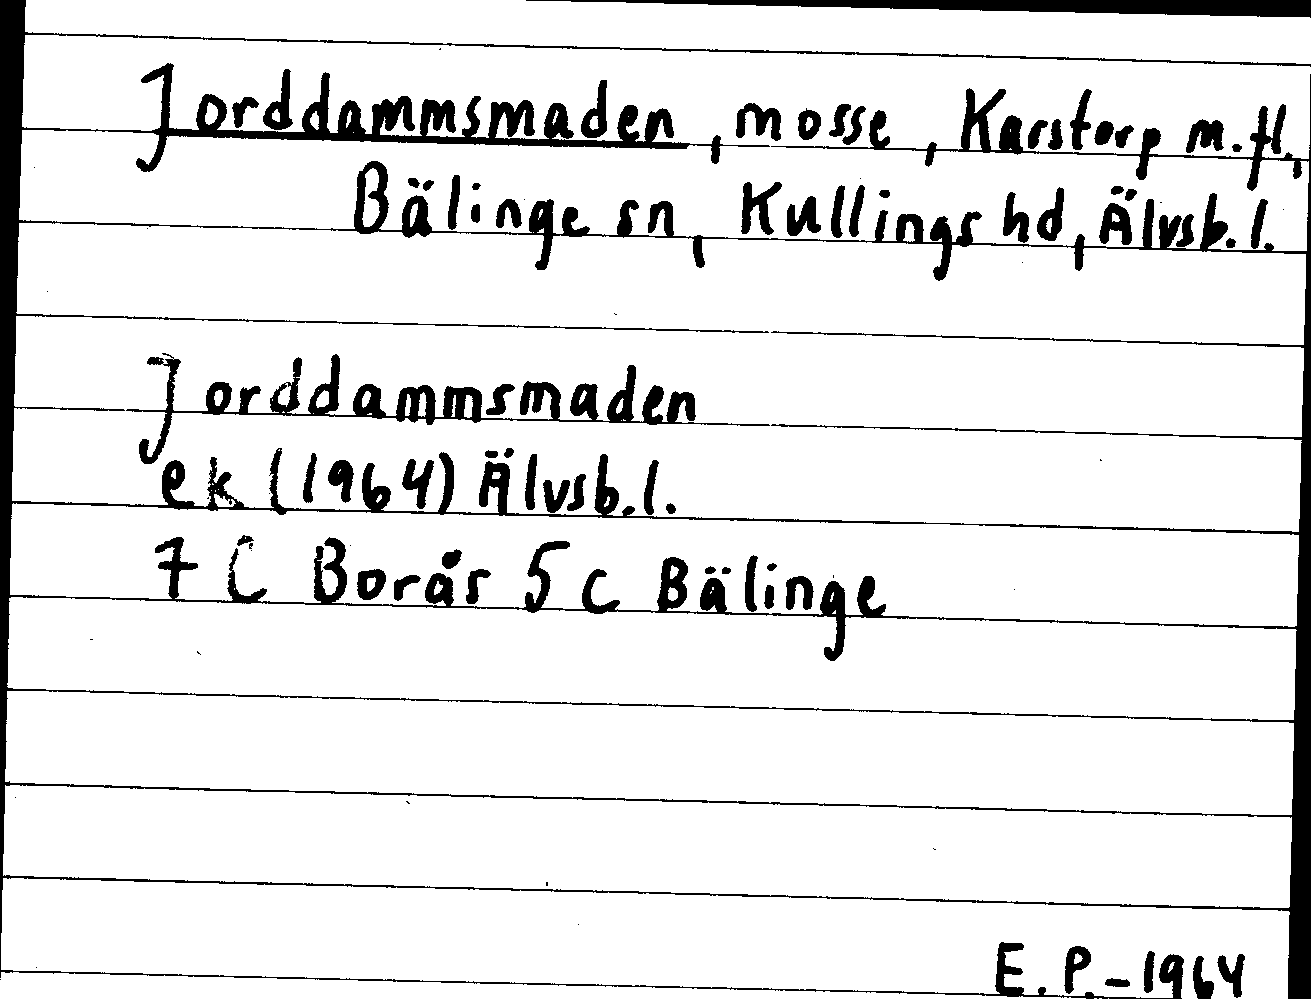 Jorddammsmaden, mosse, Karstorp m.fl.,
Bälinge sn, Kullings hd, Älvsb.l.
Jorddammsmaden
ek (1964) Älvsb.l.
7 C Borås 5 c Bälinge
E.P.-1964